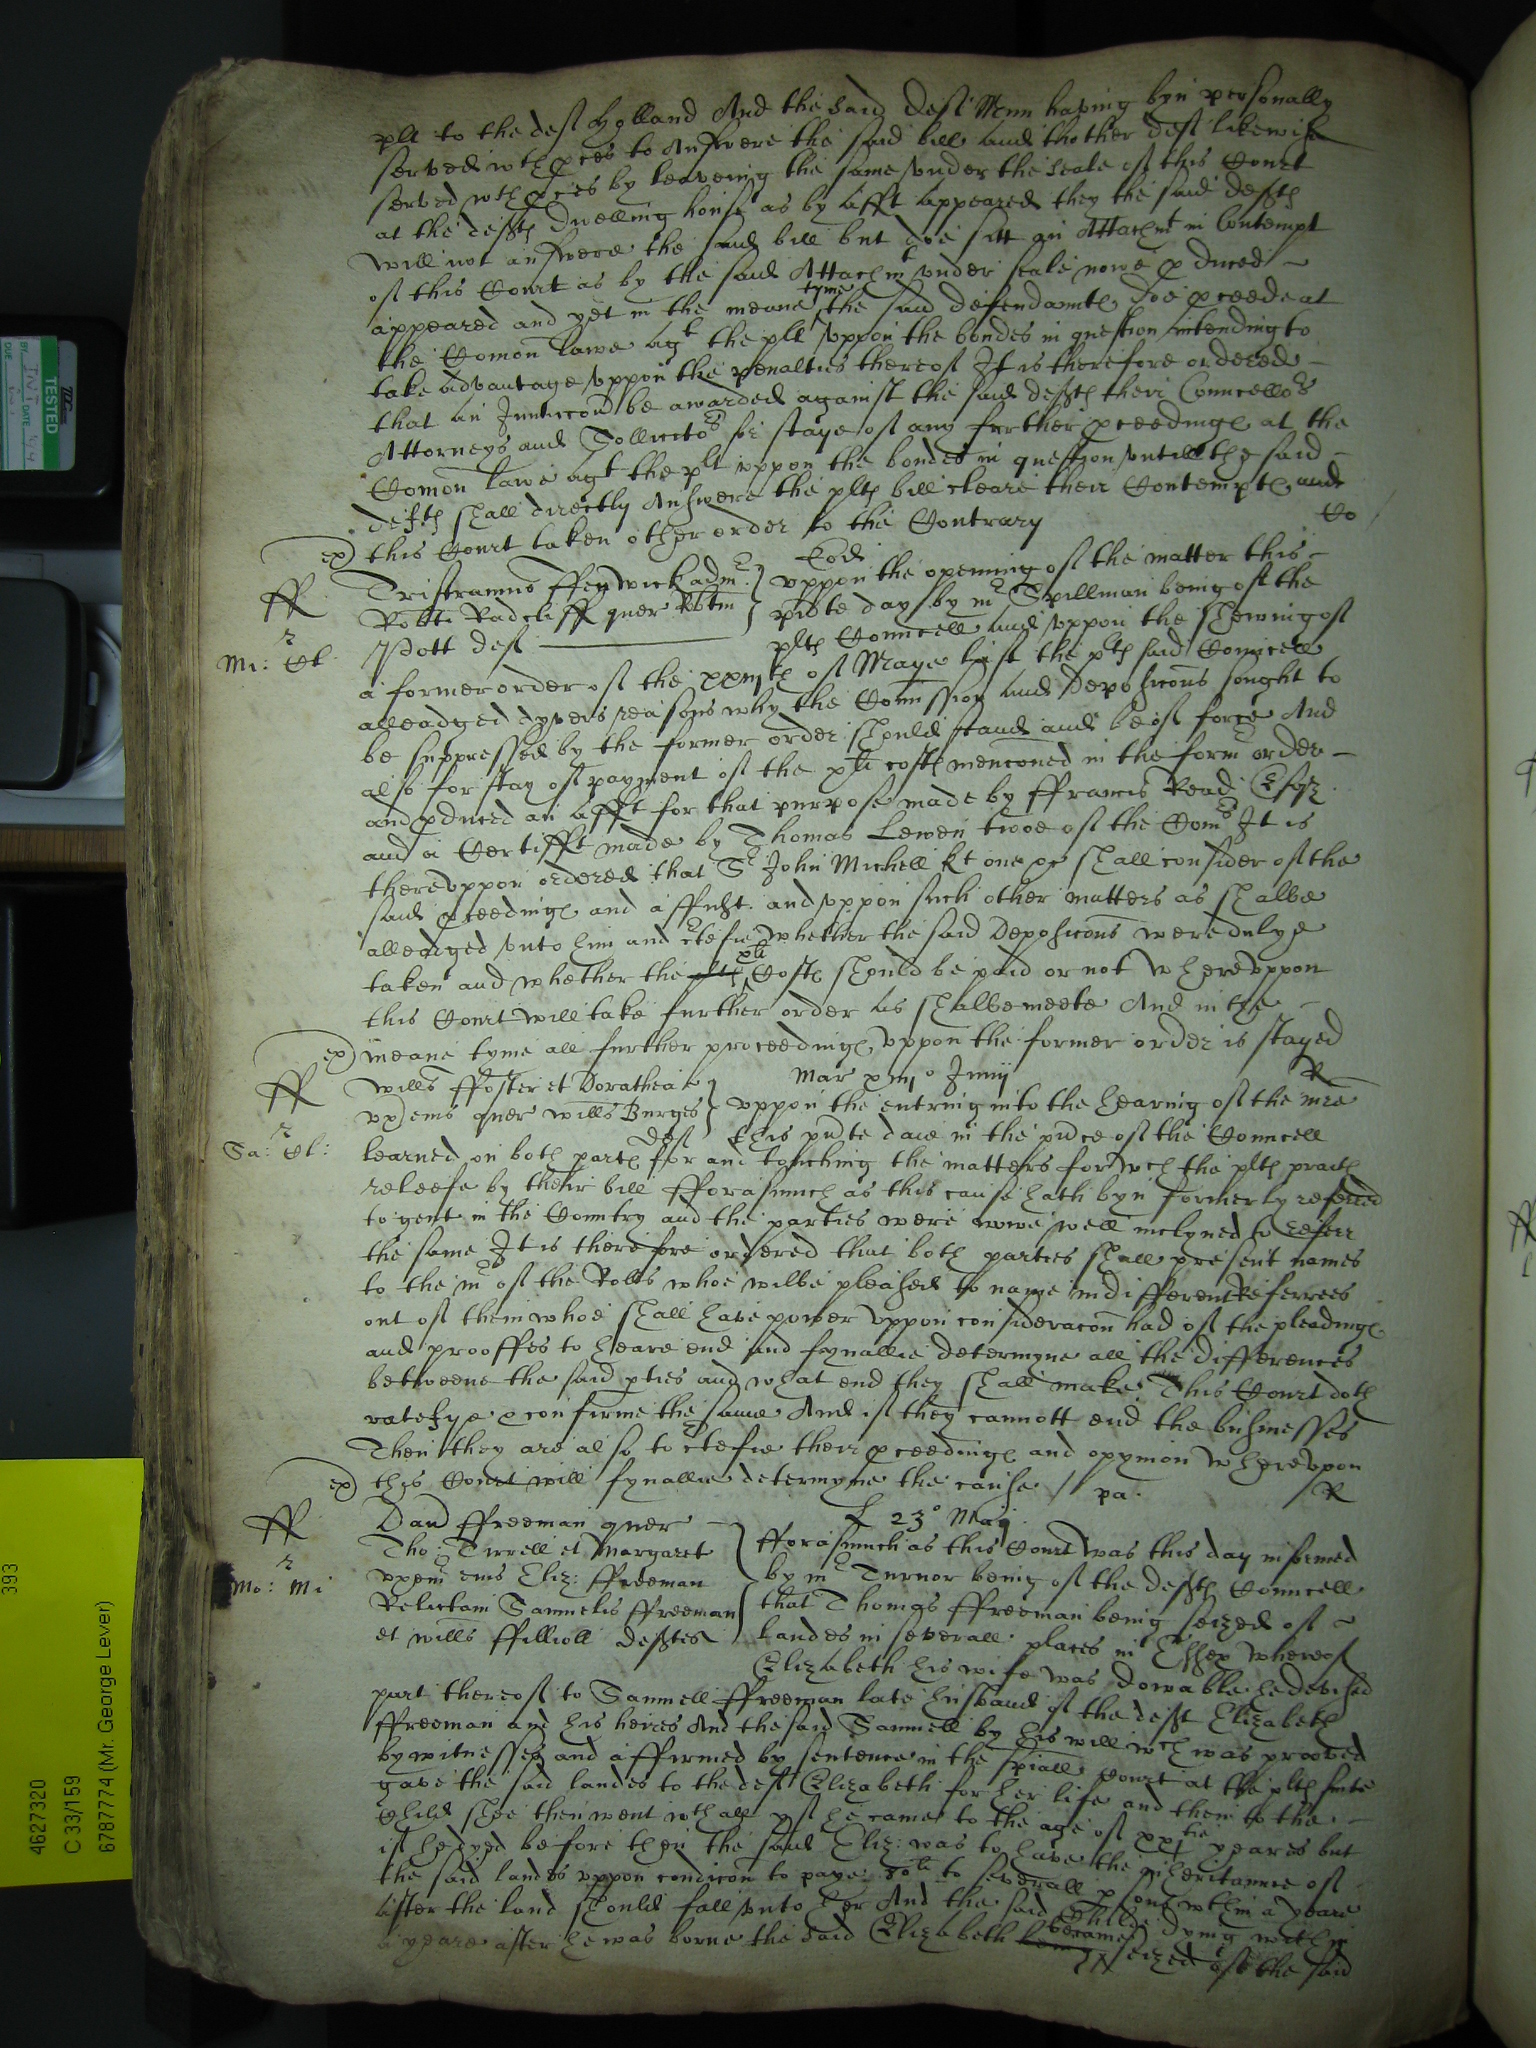 plt to the deft Holland And the said deft Menn having byn personally
served wth pces to Answere the said bill and thother deft likewise
served wth pces by leaveing the same vnder the seale of this Court
at the defts dwelling house as by afft appeared they the said defts
will not answere the said bill but doe sitt an Attachmt in Contempt
of this Court as by the said Attachmt vnder seale nowe pduced
appeared and yet in the meane tyme the said defendants doe pceede at
the Comon Lawe agt the plt vppon the bondes in question intending to
take advantage vppon the penalties thereof It is therefore ordered
that an Iniunccon be awarded against the said defts their Councellors
Attorneys and Sollicitors for staye of any further pceedings at the
Comon Lawe agt the plt vppon the bondes in question vntill the said
defts shall directly Answere the plts bill cleare their Contempts and
this Court taken other order to the Contrary
Co
ex
ff
r
Mi: Gl.
Tristramus ffenwick admr
Robti Radcliff quer Robtm
Scott deft
Eod
vppon the openning of the matter this
pnte day by mr Spillman being of the
plts Councell and vppon the shewing of
a former order of the xxiiijth of Maye last the plts said Councell
alleadged dyvers reasons why the Comission and Deposicons sought to
be suppressed by the former order should stand and be of force And
also for stay of payment of the xli costs menconed in the former order
and pduced an afft for that purpose made by ffrancis Read Esqr
and a Certifft made by Thomas Lewen twoe of the Comrs It is
therevppon ordered that Sr John Michell kt one &c shall consider of the
said pceedings and affidt. and vppon such other matters as shalbe
alleadged vnto him and ctefie whether the said Deposicons were dulye
taken and whether the xli Costs should be paid or not wherevppon
this Court will take further order as shalbe meete And in the
meane tyme all further proceedings vppon the former order is stayed
ex
ff
r
Sa: Gl:
Willus ffoster et Dorathea
vx eius quer Willus Burges
deft
Mar xiijo Junij
R
vppon the entring into the hearing of the mre
this pnte daie in the pnce of the Councell
learned on both parts for and touching the matters for wch the plts praith
releefe by their bill fforasmuch as this cause hath byn formerly referred
to gent in the Country and the parties were nowe well inclyned to referr
the same It is therefore ordered that both parties shall present names
to the mr of the Rolls whoe wilbe pleased to name indifferent Referrees
out of them whoe shall have power vppon consideracon had of the pleadings
and prooffes to heare end and fynallie determyne all the differences
betweene the said pties and what end they shall make This Court doth
ratefye & confirme the same And if they cannott end the businesses
Then they are also to ctefie their pceedings and oppynion wherevpon
this Court will fynallie determyne the cause
pa.
R
ex
ff
r
Mo: Mi
Dauid ffreeman quer
Tho: Tirrell et Margaret
vxem eius Eliz: ffreeman
Relictam Samuelis ffreeman
et Willus ffillioll deftes
23o Maij
fforasmuch as this Court was this day informed
by mr Turnor being of the defts Councell
that Thomas ffreeman being seized of
landes in severall places in Essex whereof
Elizabeth his wife was dowable he devised
part thereof to Samuell ffreeman late husband of the deft Elizabeth
ffreeman and his heires And the said Samuell by his will wch was prooved
by witnesses and affirmed by sentence in the spiall Court at the plts suite
gave the said landes to the deft Elizabeth for her life and then to the
Child shee then went wthall yf he came to the age of xxjtie yeares but
if he dyed before then the said Eliz: was to have the inheritance of
the said landes vppon condicon to paye 80li to severall psons wthin a yeare
after the land should fall vnto her And the said Childe dying within
a yeare after he was borne the said Elizabeth became seized of the said
TESTED
BY INIT DATE
DUE
393
4627320
C 33/159
67877774 (Mr. George Lever)